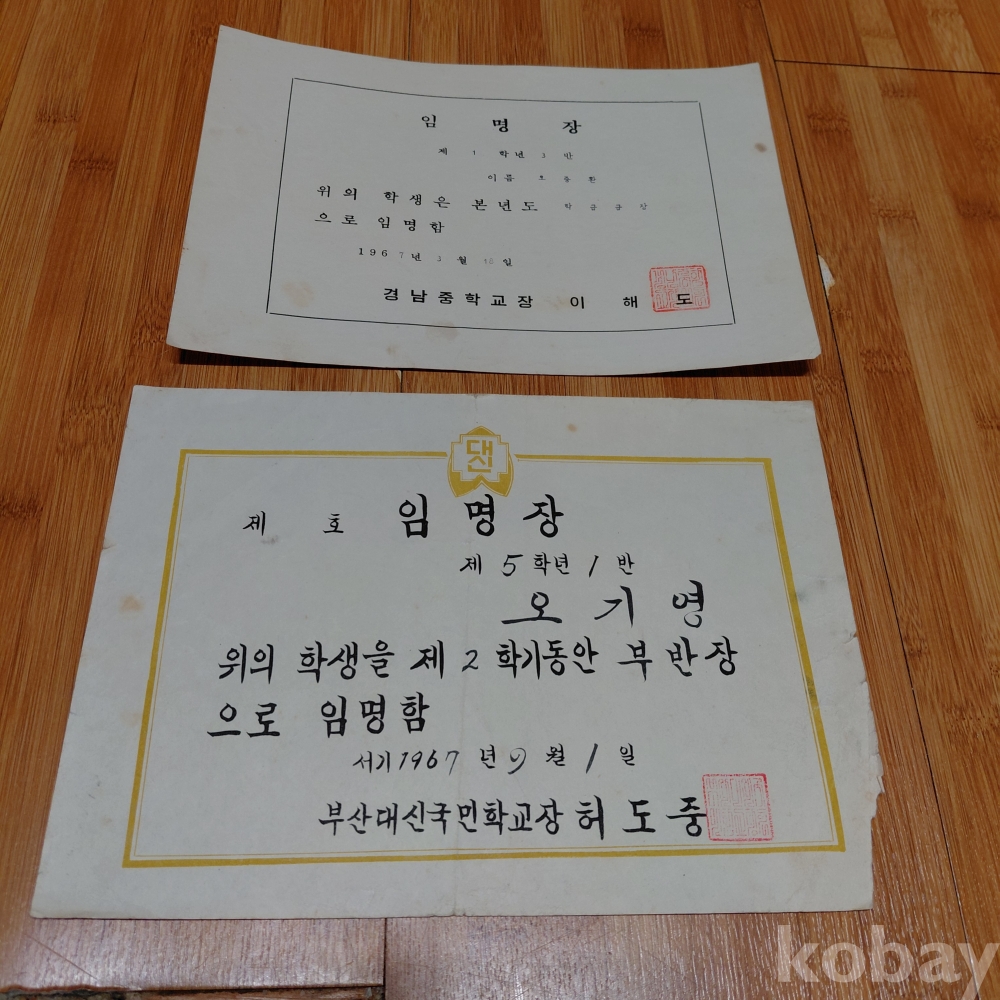 임 명 장
제 1 학년 3 반
이름 오 용 환
위의 학생은 본년도
으로 임명함
1967년 3월 10일
경남중학교장 이 해 도
대신
제 호 임 명 장
제 5 학년 1 반
오 기 영
위의 학생을 제 2 학기동안 부반장
으로 임명함
서기 1967 년 9 월 1 일
부산대신국민학교장 허 도 중
kobay